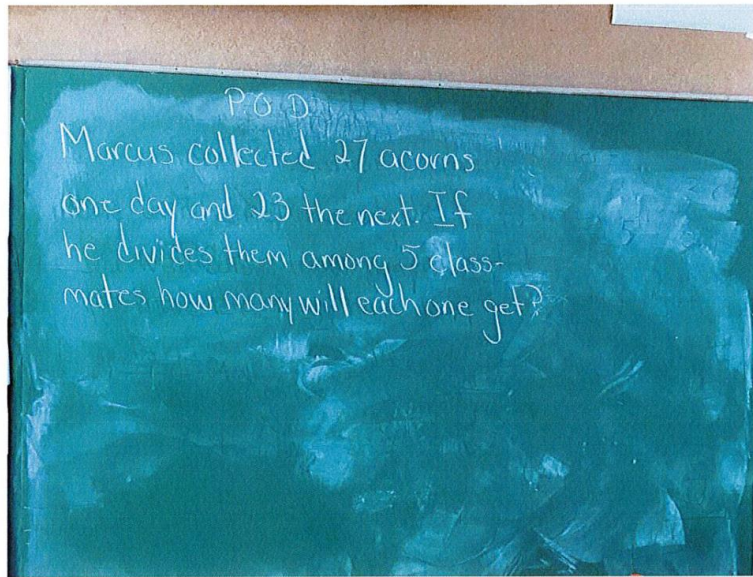 P.O.D.
Marcus collected 27 acorns
one day and 23 the next. If
he divides them among 5 class-
mates how many will each one get?